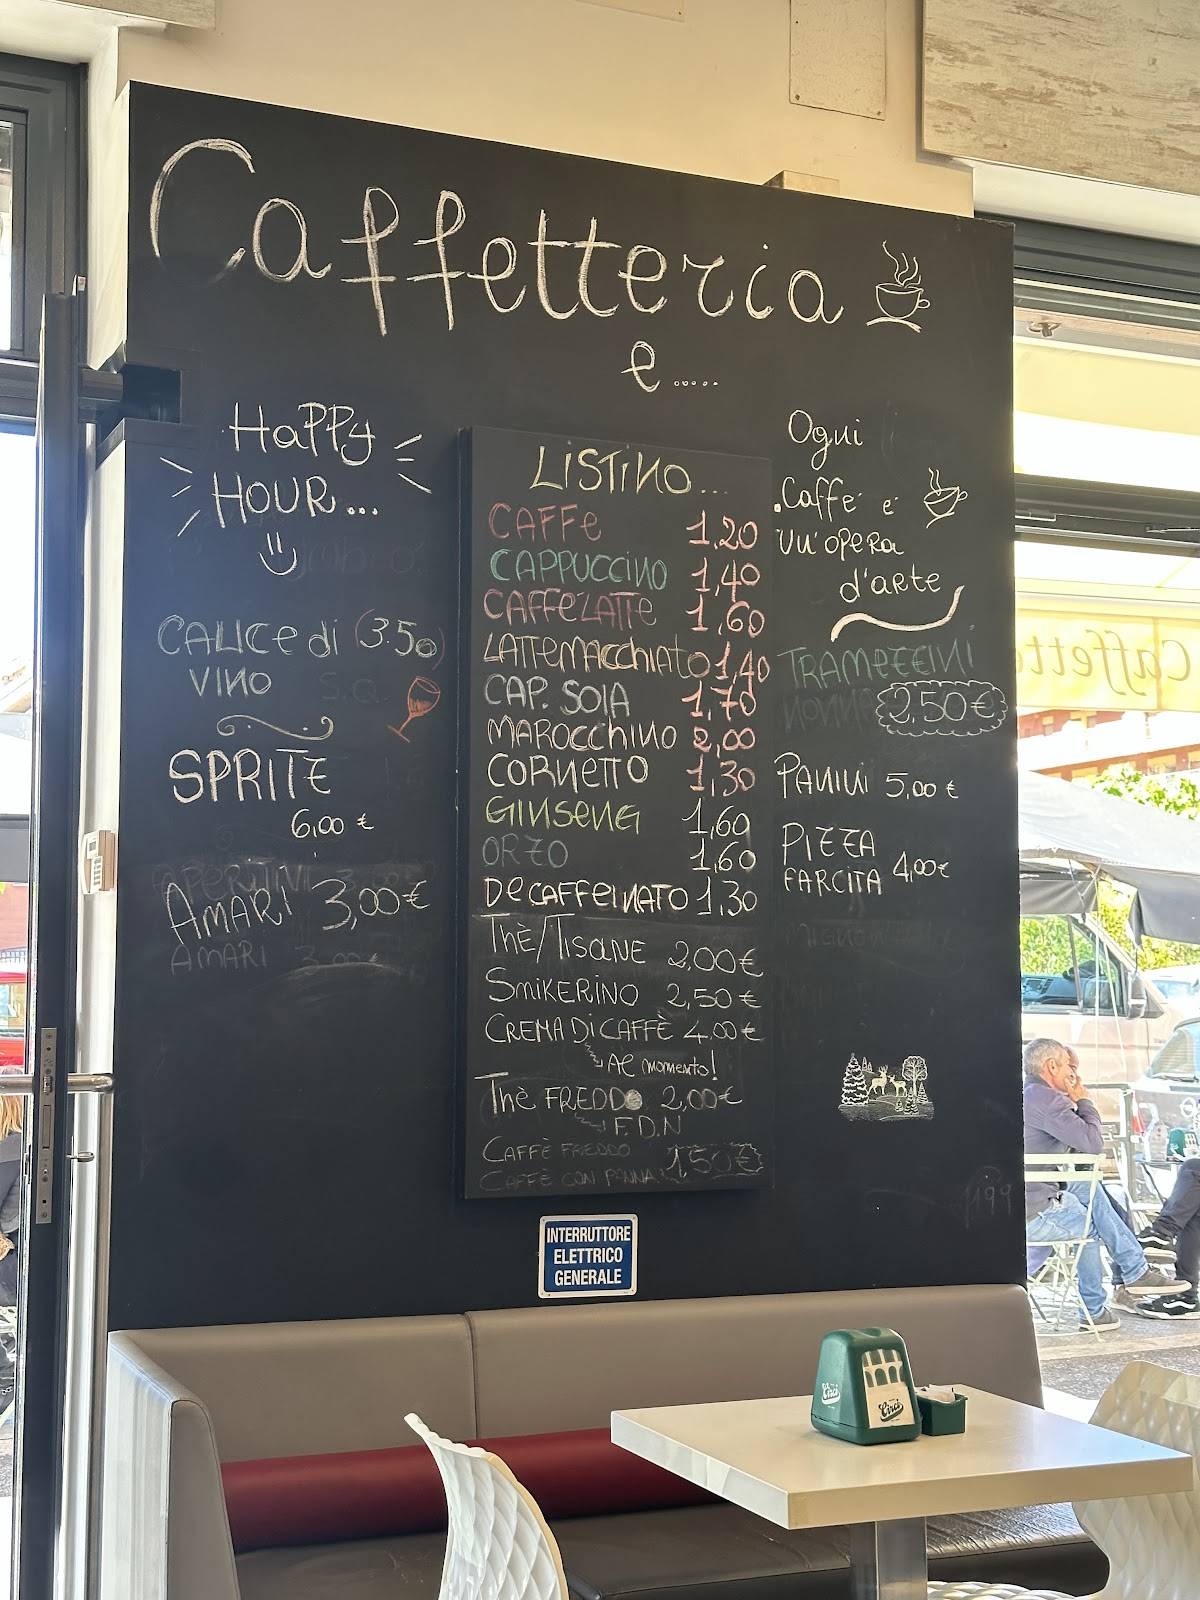 Caffetteria
e.....
HaPPy
HOUR...
CALICE di (3.50)
VINO S.Q.
SPRITZ
6,00 €
APERITIVI
AMARI 3,00€
AMARI 3,00€
LISTINO...
CAFFE 1,20
CAPPUCCINO 1,40
CAFFELATTE 1,60
LATTEMACChIATO 1,40
CAP. SOIA 1,70
MAROCChINO 2,00
CORNETTO 1,30
GINSENG 1,60
ORZO 1,60
DECAFFEINATO 1,30
Thè/TISANE 2,00€
SMIKERINO 2,50€
CREMA Di CAFFÈ 4,00€
Al momento!
Thè FREDDO 2,00€
F.D.N
CAFFÈ FREDDO
CAFFÈ CON PANNA 150€
Ogni
Caffé é
Un'opera
d'arte
TRAMEZZINI
2,50€
PANINI 5,00€
PIZZA
FARCITA 4,00€
INTERRUTTORE
ELETTRICO
GENERALE
Circi
Circi
Caffett